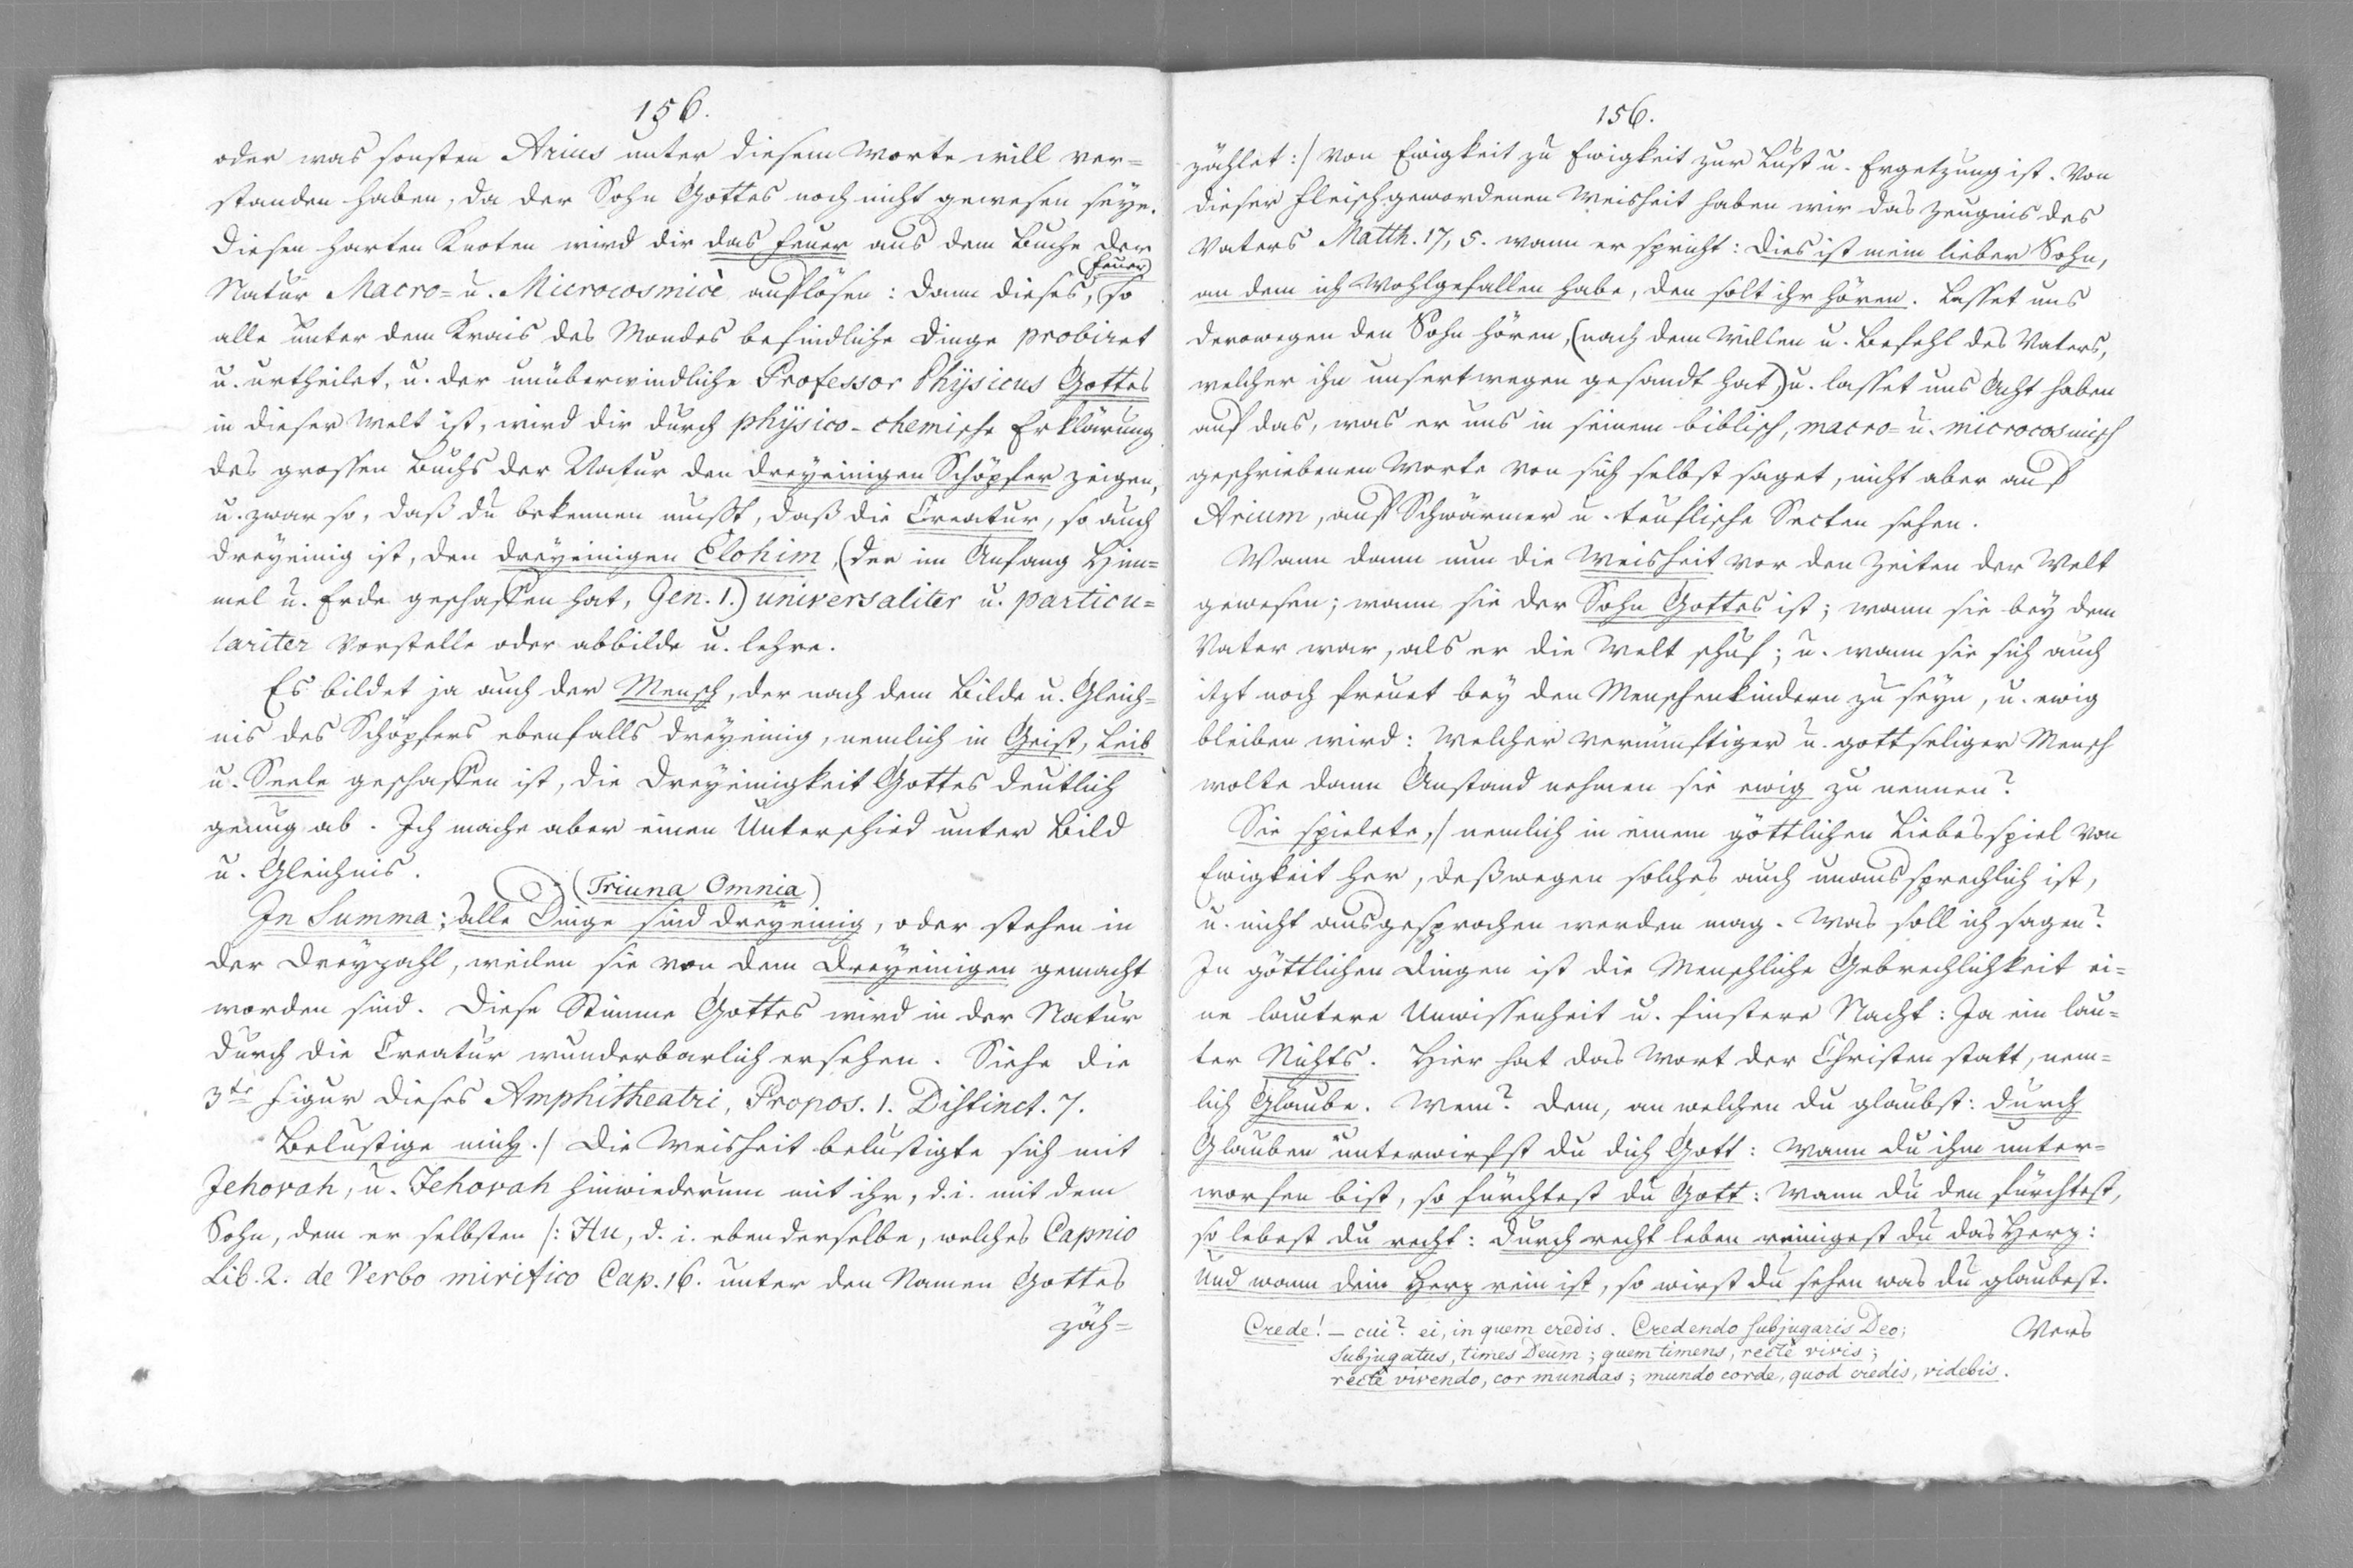 156.
oder was sonsten Arius unter diesem Worte will ver=
standen haben, da der Sohn Gottes noch nicht gewesen seye.
Diesen harten Knoten wird dir das Feuer aus dem Buche der
(Feuer)
Natur Macro- u. Microcosmicè auflösen: dann dieses, so
alle unter dem Krais des Mondes befindliche Dinge probiret
u. urtheilet, u. der unüberwindliche Professor Physicus Gottes
in dieser Welt ist, wird dir durch physico-chemische Erklärung
des grossen Buchs der Natur den dreyeinigen Schöpfer zeigen,
u. zwar so, daß du bekennen must, daß die Creatur, so auch
dreyeinig ist, den dreyeinigen Elohim, (der im Anfang Him=
mel u. Erde geschaffen hat, Gen. 1.) universaliter u. particu=
lariter vorstelle oder abbilde u. lehre.
Es bildet ja auch der Mensch, der nach dem Bilde u. Gleich=
nis des Schöpfers ebenfalls dreyeinig, nemlich in Geist, Leib
u. Seele geschaffen ist, die Dreyeinigkeit Gottes deutlich
genug ab. Ich mache aber einen Unterschied unter Bild
u. Gleichnis.
(Triuna Omnia)
In Summa: alle Dinge sind dreyeinig, oder stehen in
der Dreyzahl, weilen sie von dem dreyeinigen gemacht
worden sind. Diese Stimme Gottes wird in der Natur
durch die Creatur wunderbarlich ersehen. Siehe die
3te Figur dieses Amphitheatri, Propos. 1. Distinct. 7.
Belustige mich./ Die Weisheit belustigte sich mit
Jehovah, u. Jehovah hinwiederum mit ihr, d. i. mit dem
Sohn, dem er selbsten /: Hu, d. i. ebenderselbe, welches Capnio
Lib. 2. de Verbo mirifico Cap. 16. unter den Namen Gottes
zäh=
156.
zählet :/ von Ewigkeit zu Ewigkeit zur Lust u. Ergetzung ist. Von
dieser Fleischgewordenen Weisheit haben wir das Zeugnis des
Vaters Matth. 17, 5. wann er spricht: Dies ist mein lieber Sohn,
an dem ich Wohlgefallen habe, den solt ihr hören. Lasset uns
derowegen den Sohn hören, (nach dem Willen u. Befehl des Vaters,
welcher ihn unsertwegen gesandt hat) u. lasset uns Acht haben
auf das, was er uns in seinem biblisch, macro- u. microcosmisch
geschriebenen Worte von sich selbst saget, nicht aber auf
Arium, auf Schwärmer u. teuflische Secten sehen.
Wann dann nun die Weisheit vor den Zeiten der Welt
gewesen; wann sie der Sohn Gottes ist; wann sie bey dem
Vater war, als er die Welt schuf; u. wann sie sich auch
itzt noch freuet bey den Menschenkindern zu seyn, u. ewig
bleiben wird: Welcher vernünftiger u. gottseliger Mensch
wolte dann Anstand nehmen sie ewig zu nennen?
Sie spielete,/ nemlich in einem göttlichen Liebesspiel von
Ewigkeit her, deßwegen solches auch unaussprechlich ist,
u. nicht ausgesprochen werden mag. Was soll ich sagen?
In göttlichen Dingen ist die Menschliche Gebrechlichkeit ei=
ne lautere Unwissenheit u. finstere Nacht: Ja ein lau=
ter Nichts. Hier hat das Wort der Christen statt, nem=
lich Glaube. Wem? dem, an welchen du glaubst: durch
Glauben unterwirfst du dich Gott: Wann du ihm unter=
worfen bist, so fürchtest du Gott: Wann du den fürchtest,
so lebest du recht: durch recht leben reinigest du das Herz:
Und wann dein Herz rein ist, so wirst du sehen was du glaubest.
Crede! – cui? ei, in quem credis. Credendo subjugaris Deo;
Vers
Subjugatus, times Deum; quem timens, rectè vivis;
rectè vivendo, cor mundas; mundo corde, quod credis, videbis.